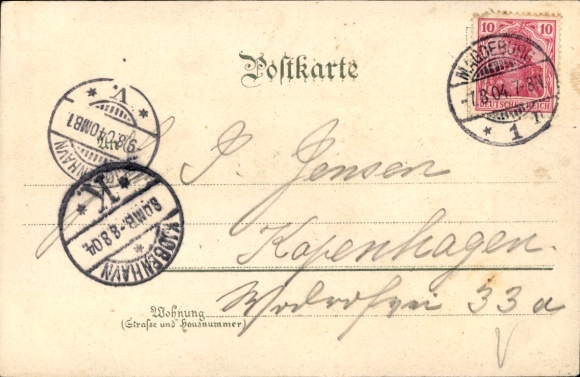 Postkarte
10 10
DEUTSCHES REICH
MAGDEBURG
-7.8.04.7-8N
* 1
V
9.8.04.OMB1
An
J. Jensen
K
8.OMB-8.8.04
KJØBENHAVN
Kopenhagen.
33a
Wohnung
(Straße und Hausnummer)